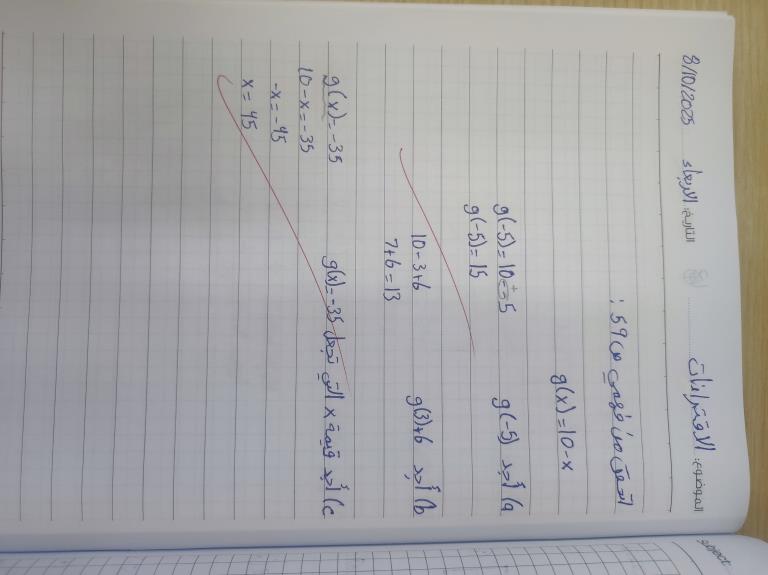 8/10/2025 التاريخ: الاربعاء
الموضوع: الاقترانات
اتحقق من فهمي ص 59 :
g(x)=10-x
a) أجد g(-5)
g(-5)=10+5
g(-5)=15
b) أجد g(3)+6
10-3+6
7+6=13
c) أجد قيمة x التي تجعل g(x)=-35
g(x)=-35
10-x=-35
-x=-45
x=45